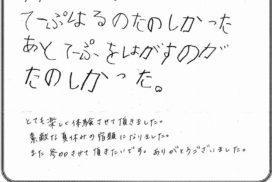 てーぷはるのたのしかった
あと てーぷをはがすのが
たのしかった。
とても楽しく体験させて頂きました。
素敵な夏休みの宿題になりました。
また参加させて頂きたいです。ありがとうございました。